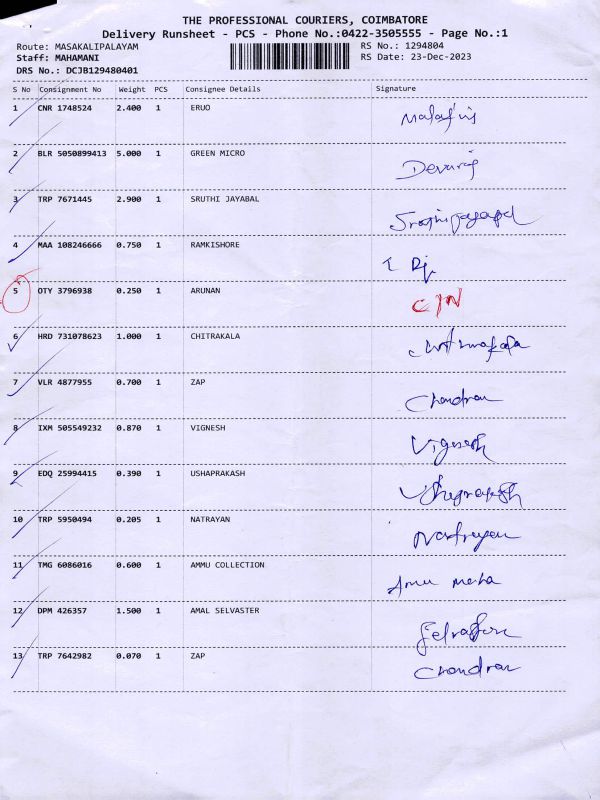 THE PROFESSIONAL COURIERS, COIMBATORE
Delivery Runsheet - PCS - Phone No.:0422-3505555 - Page No.:1
Route: MASAKALIPALAYAM
Staff: MAHAMANI
DRS No.: DCJB129480401
RS No.: 1294804
RS Date: 23-Dec-2023
S No Consignment No Weight PCS Consignee Details Signature
1 CNR 1748524 2.400 1 ERUO
2 BLR 5050899413 5.000 1 GREEN MICRO Devaraj
3 TRP 7671445 2.900 1 SRUTHI JAYABAL
4 MAA 108246666 0.750 1 RAMKISHORE
5 OTY 3796938 0.250 1 ARUNAN
6 HRD 731078623 1.000 1 CHITRAKALA
7 VLR 4877955 0.700 1 ZAP Chandran
8 IXM 505549232 0.870 1 VIGNESH Vignesh
9 EDQ 25994415 0.390 1 USHAPRAKASH
10 TRP 5950494 0.205 1 NATRAYAN Natrayan
11 TMG 6086016 0.600 1 AMMU COLLECTION
12 DPM 426357 1.500 1 AMAL SELVASTER
13 TRP 7642982 0.070 1 ZAP Chandran